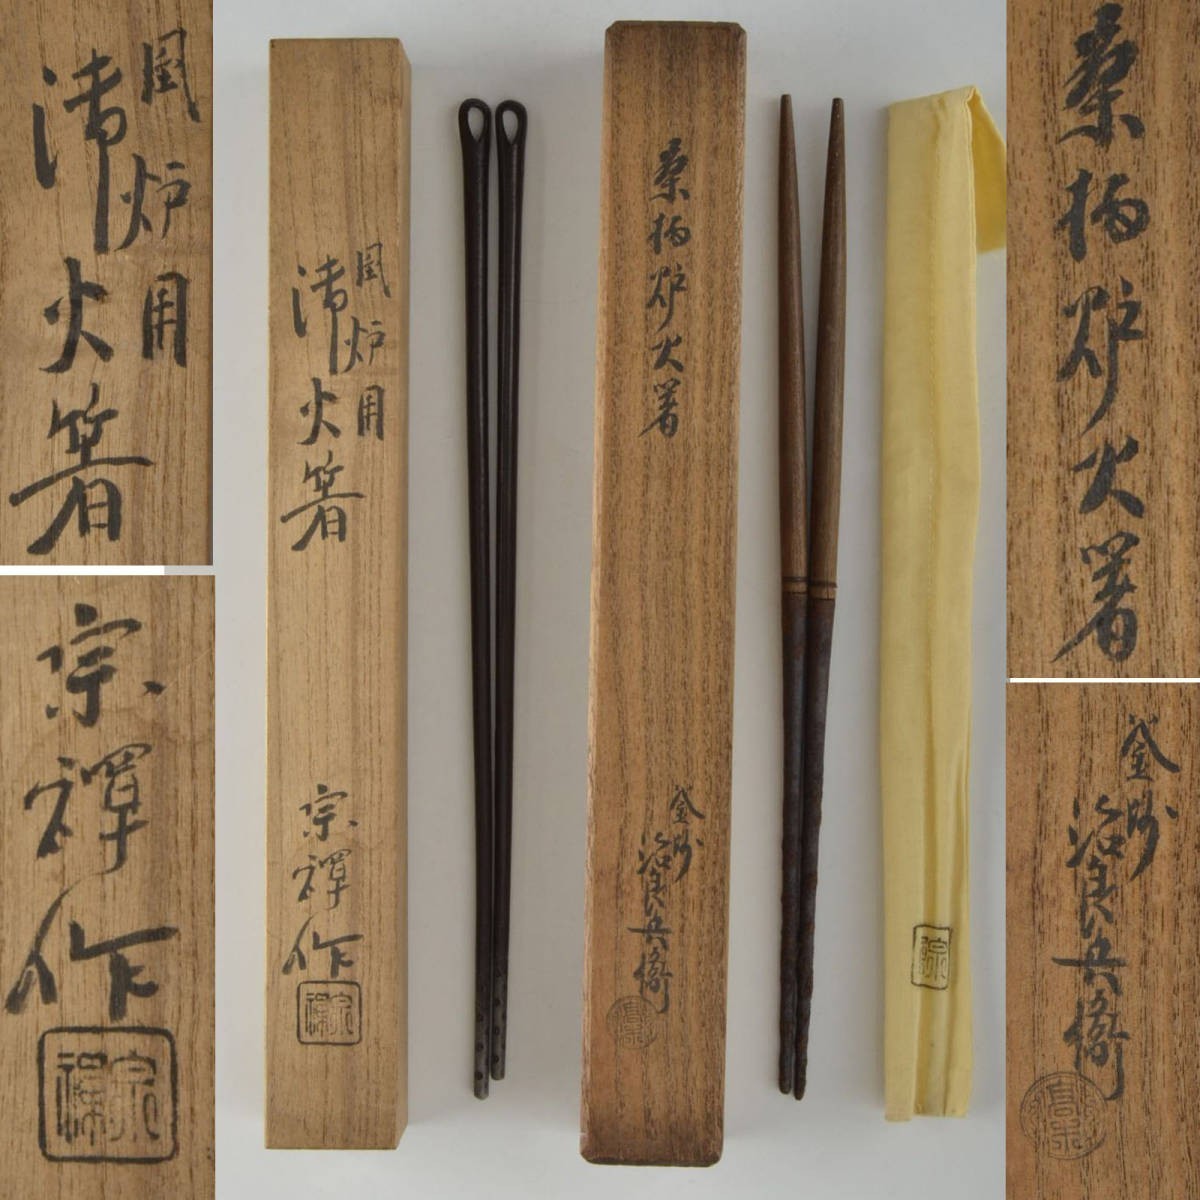 風炉用
清火箸
宗禅作
宗禅
風炉用
清火箸
宗禅作
宗禅
桑柄炉火箸
釜師
治良兵衛
桑柄炉火箸
釜師
治良兵衛